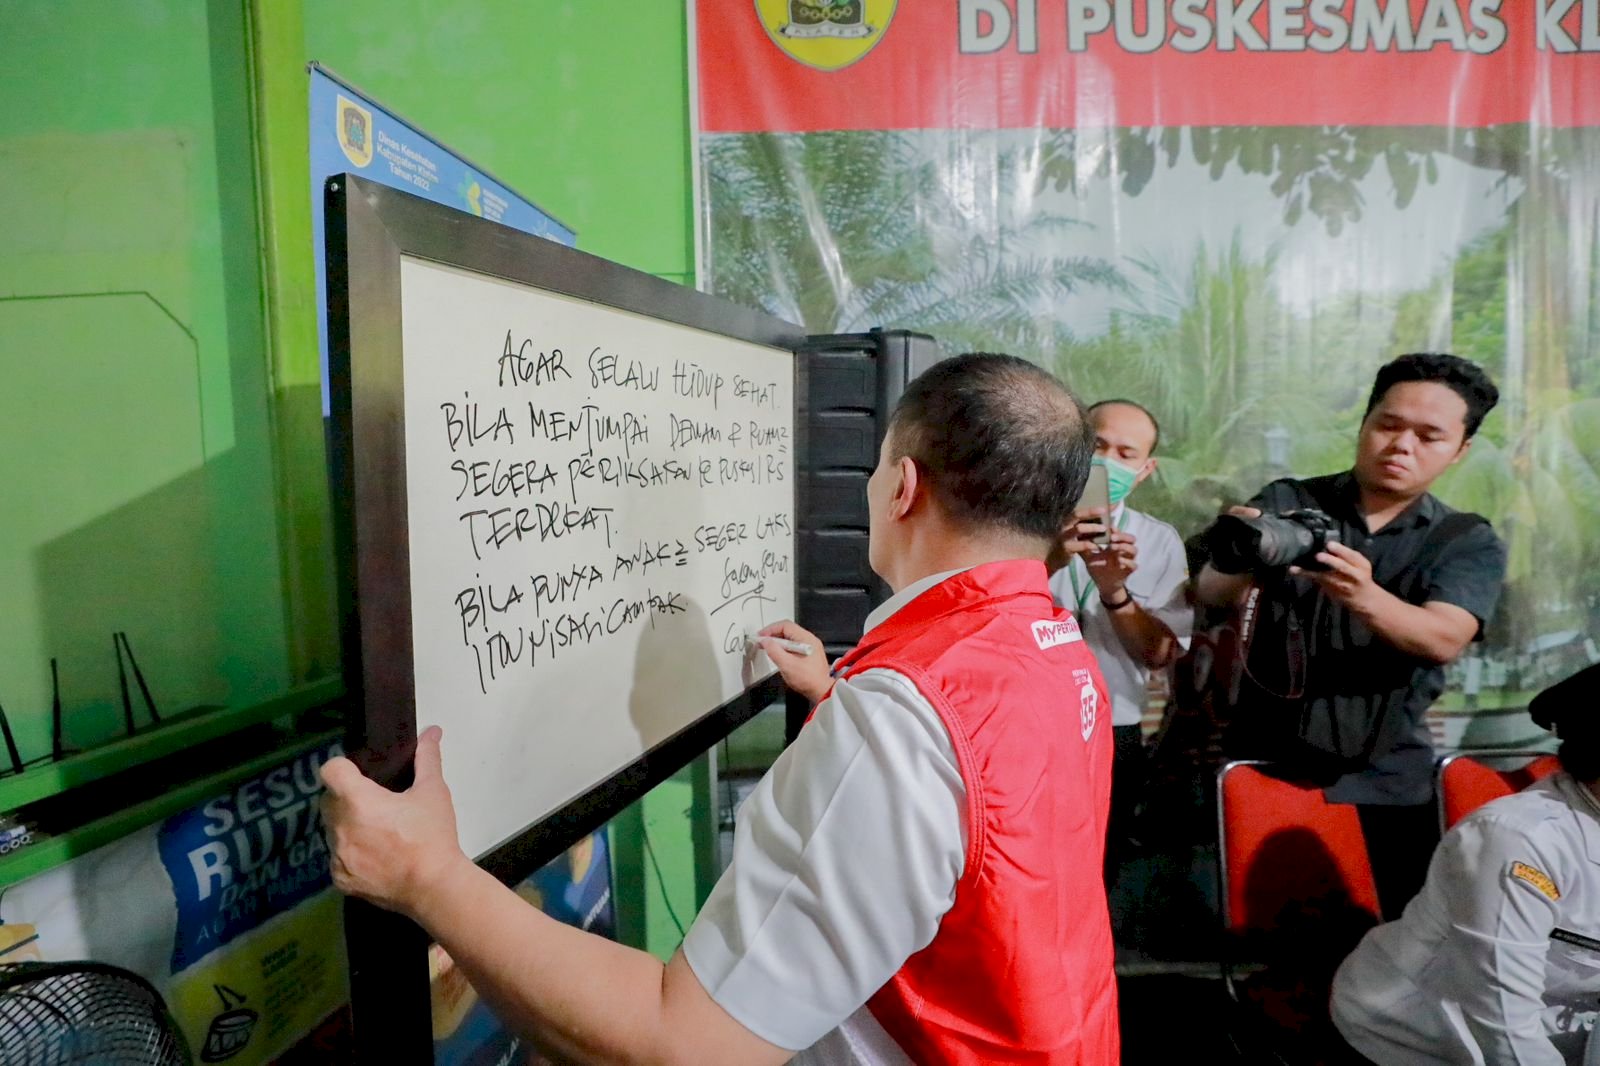 KLATEN
DI PUSKESMAS KL
Dinas Kesehatan
Kabupaten Klaten
Tahun 2022
AGAR SELALU HIDUP SEHAT.
BILA MENJUMPAI DEMAM & RUAM2
SEGERA PERIKSAKAN KE PUSKS/RS
TERDEKAT.
BILA PUNYA ANAK2 SEGER LAKS
IMUNISASI CAMPAK
Salam Sehat
MyPERTA
135
SESU
RUTI
DAN GA